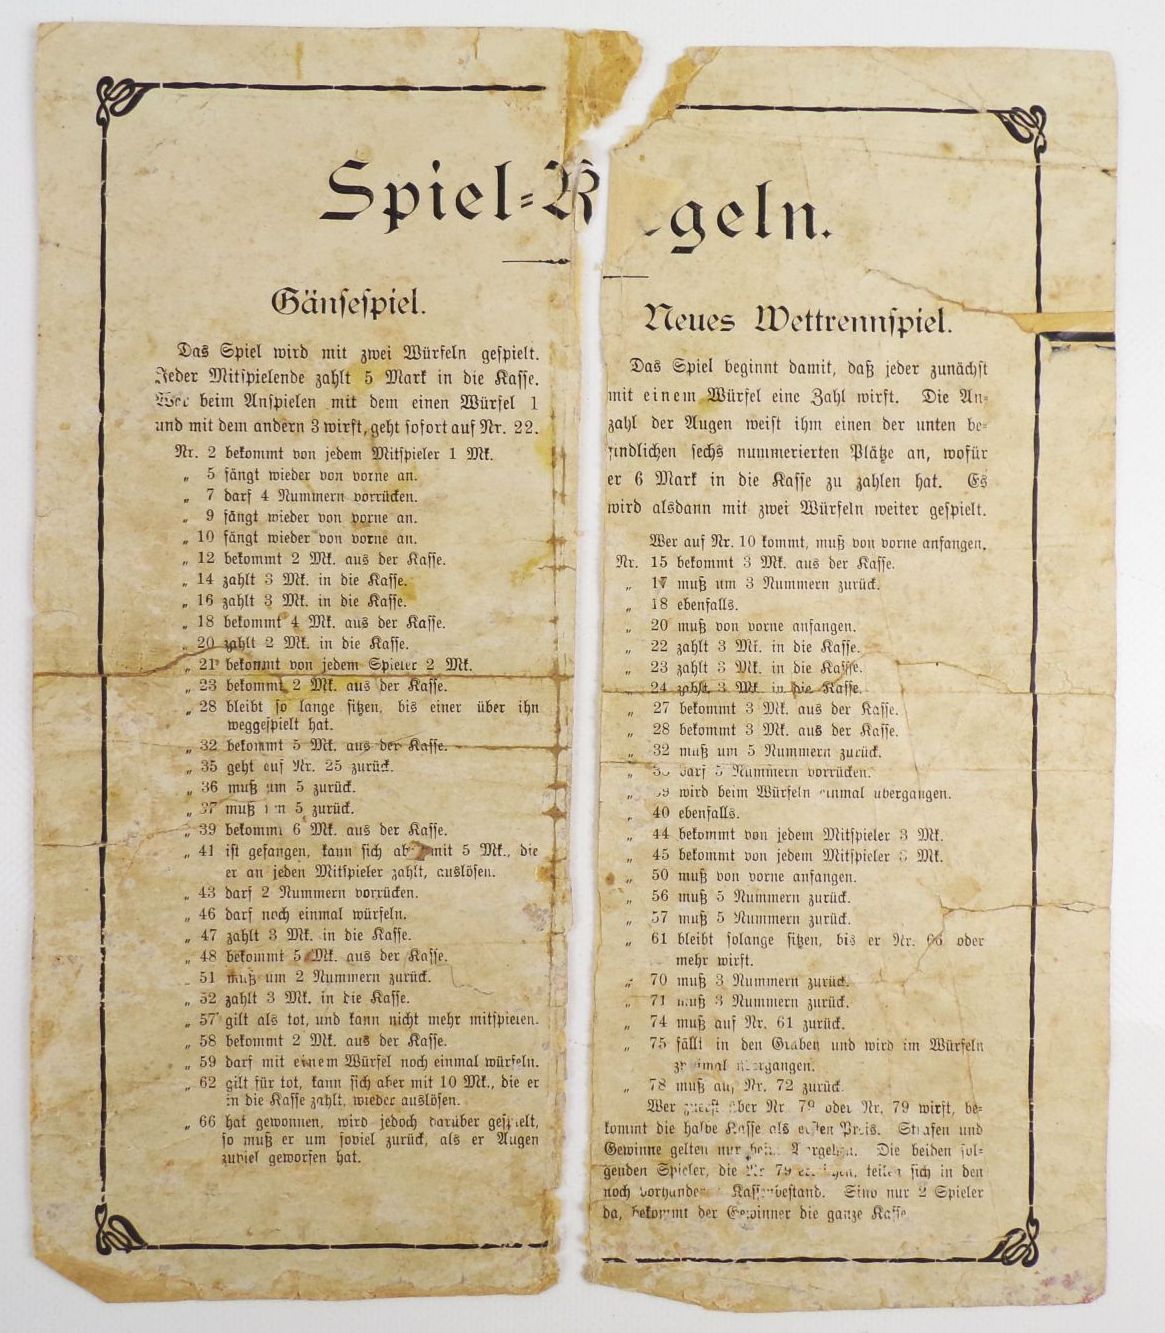 Spiel=Regeln.
Gänsespiel.
Das Spiel wird mit zwei Würfeln gespielt.
Jeder Mitspielende zahlt 5 Mark in die Kasse.
Wer beim Anspielen mit dem einen Würfel 1
und mit dem andern 3 wirft, geht sofort auf Nr. 22.
Nr. 2 bekommt von jedem Mitspieler 1 Mk.
„ 5 fängt wieder von vorne an.
„ 7 darf 4 Nummern vorrücken.
„ 9 fängt wieder von vorne an.
„ 10 fängt wieder von vorne an.
„ 12 bekommt 2 Mk. aus der Kasse.
„ 14 zahlt 3 Mk. in die Kasse.
„ 16 zahlt 3 Mk. in die Kasse.
„ 18 bekommt 4 Mk. aus der Kasse.
„ 20 zahlt 2 Mk. in die Kasse.
„ 21 bekommt von jedem Spieler 2 Mk.
„ 23 bekommt 2 Mk. aus der Kasse.
„ 28 bleibt so lange sitzen, bis einer über ihn
weggespielt hat.
„ 32 bekommt 5 Mk. aus der Kasse.
„ 35 geht auf Nr. 25 zurück.
„ 36 muß um 5 zurück.
„ 37 muß um 5 zurück.
„ 39 bekommt 6 Mk. aus der Kasse.
„ 41 ist gefangen, kann sich aber mit 5 Mk., die
er an jeden Mitspieler zahlt, auslösen.
„ 43 darf 2 Nummern vorrücken.
„ 46 darf noch einmal würfeln.
„ 47 zahlt 3 Mk. in die Kasse.
„ 48 bekommt 5 Mk. aus der Kasse.
„ 51 muß um 2 Nummern zurück.
„ 52 zahlt 3 Mk. in die Kasse.
„ 57 gilt als tot, und kann nicht mehr mitspielen.
„ 58 bekommt 2 Mk. aus der Kasse.
„ 59 darf mit einem Würfel noch einmal würfeln.
„ 62 gilt für tot, kann sich aber mit 10 Mk., die er
in die Kasse zahlt, wieder auslösen.
„ 66 hat gewonnen, wird jedoch darüber gespielt,
so muß er um soviel zurück, als er Augen
zuviel geworfen hat.
Neues Wettrennspiel.
Das Spiel beginnt damit, daß jeder zunächst
mit einem Würfel eine Zahl wirft. Die An=
zahl der Augen weist ihm einen der unten be=
findlichen sechs nummerierten Plätze an, wofür
er 6 Mark in die Kasse zu zahlen hat. Es
wird alsdann mit zwei Würfeln weiter gespielt.
Wer auf Nr. 10 kommt, muß von vorne anfangen.
Nr. 15 bekommt 3 Mk. aus der Kasse.
„ 17 muß um 3 Nummern zurück.
„ 18 ebenfalls.
„ 20 muß von vorne anfangen.
„ 22 zahlt 3 Mk. in die Kasse.
„ 23 zahlt 3 Mk. in die Kasse.
„ 24 zahlt 3 Mk. in die Kasse.
„ 27 bekommt 3 Mk. aus der Kasse.
„ 28 bekommt 3 Mk. aus der Kasse.
„ 32 muß um 5 Nummern zurück.
„ darf 5 Nummern vorrücken.
„ 39 wird beim Würfeln einmal übergangen.
„ 40 ebenfalls.
„ 44 bekommt von jedem Mitspieler 3 Mk.
„ 45 bekommt von jedem Mitspieler 3 Mk.
„ 50 muß von vorne anfangen.
„ 56 muß 5 Nummern zurück.
„ 57 muß 5 Nummern zurück.
„ 61 bleibt solange sitzen, bis er Nr. 66 oder
mehr wirft.
„ 70 muß 3 Nummern zurück.
„ 71 muß 3 Nummern zurück.
„ 74 muß auf Nr. 61 zurück.
„ 75 fällt in den Graben und wird im Würfeln
zweimal übergangen.
„ 78 muß auf Nr. 72 zurück.
Wer zuerst über Nr. 79 oder Nr. 79 wirft, be=
kommt die halbe Kasse als ersten Preis. Strafen und
Gewinne gelten nur beim Die beiden fol=
genden Spieler, die Nr. 79 teilen sich in den
noch vorhandenen Kassenbestand. Sind nur 2 Spieler
da, bekommt der Gewinner die ganze Kasse